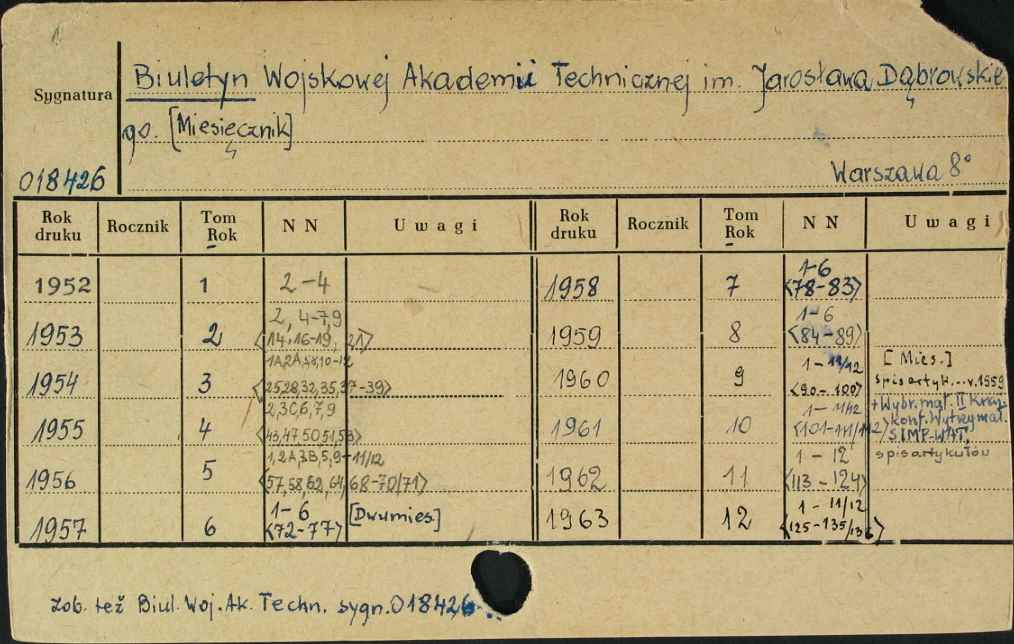 Sygnatura
Biuletyn Wojskowej Akademii Technicznej im. Jarosława Dąbrowskie
go. [Miesięcznik]
018426
Warszawa 8°
Rok druku Rocznik Tom Rok NN Uwagi Rok druku Rocznik Tom Rok NN Uwagi
1952 1 2-4
1953 2 2, 4-7,9 <14,16-19, 21>
1954 3 10-12 <25,28,32,35,37-39>
1955 4 2,3C,6,7,9 <43,47,50,51,53>
1956 5 1,2A,3B,5,9-11/12 <57,58,62,64,68-70/71>
1957 6 1-6 <72-77> [Dwumies.]
1958 7 1-6 <78-83>
1959 8 1-6 <84-89>
1960 9 1-11/12 <90-100> [Mies.] spis artyk...v.1959
1961 10 1-11/12 <101-111/112> +Wybr. mat. II Kraj. konf. Wytrzymał. SIMP-WAT, spis artykułów
1962 11 1-12 <113-124>
1963 12 1-11/12 <125-135/136>
zob. też Biul. Woj. Ak. Techn. sygn. 018426